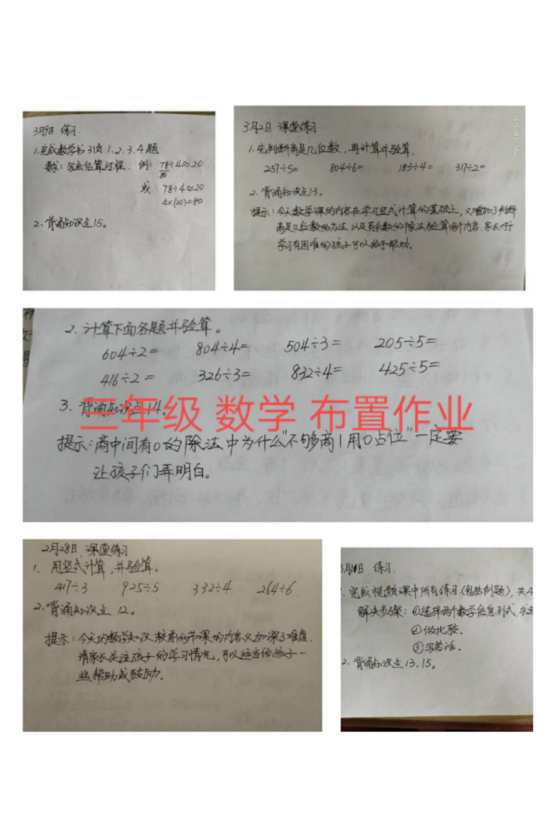 3月9日 练习
1.完成数学书31页1.2.3.4题
要求:写出估算过程. 例: 78÷4≈20
80
或 78÷4≈20
4×(20)=80
2.背诵知识点15。
3月2日 课堂练习
1.先判断商是几位数,再计算并验算.
257÷5= 804÷6= 183÷4= 317÷2=
2.背诵知识点13。
提示:今天数学课的内容在学习竖式计算的基础上,又增加了判断
商是几位数的方法,以及有余数的除法验算两个内容.家长对于
学习有困难的孩子可以给予帮助。
2.计算下面各题并验算。
604÷2= 804÷4= 504÷3= 205÷5=
416÷2= 326÷3= 832÷4= 425÷5=
3.背诵知识点14。
三年级 数学 布置作业
提示:商中间有0的除法中为什么"不够商1用0占位"一定要
让孩子们弄明白。
2月28日 课堂练习
1.用竖式计算,并验算。
417÷3 925÷5 332÷4 264÷6
2.背诵知识点12。
提示:今天的数学知识,较着前节课的内容又加深了难度,
请家长关注孩子的学习情况,可以适当给孩子一
些帮助或鼓励.
练习.
完成视频课中所有练习(包括例题),共4
解决步骤:①选择两个数学信息列式,
②做比较.
③写答语.
2.背诵知识点13,15。